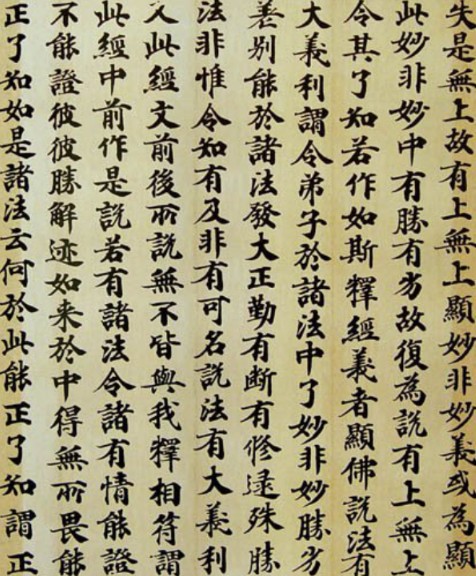 失是無上故有上無上顯妙非妙義或為顯
此妙非妙中有勝有劣故復為說有上無上
令其了知若作如斯釋經義者顯佛說法有
大義利謂令弟子於諸法中了妙非妙勝劣
差別能於諸法發大正勤有断有修逮殊勝
法非惟令知有及非有可名說法有大義利
又此經文前後所說無不皆與我釋相符謂
此經中前作是説若有諸法令諸有情能證
不能證彼彼勝解迹如来於中得無所畏能
正了知如是諸法云何於此能正了知謂正